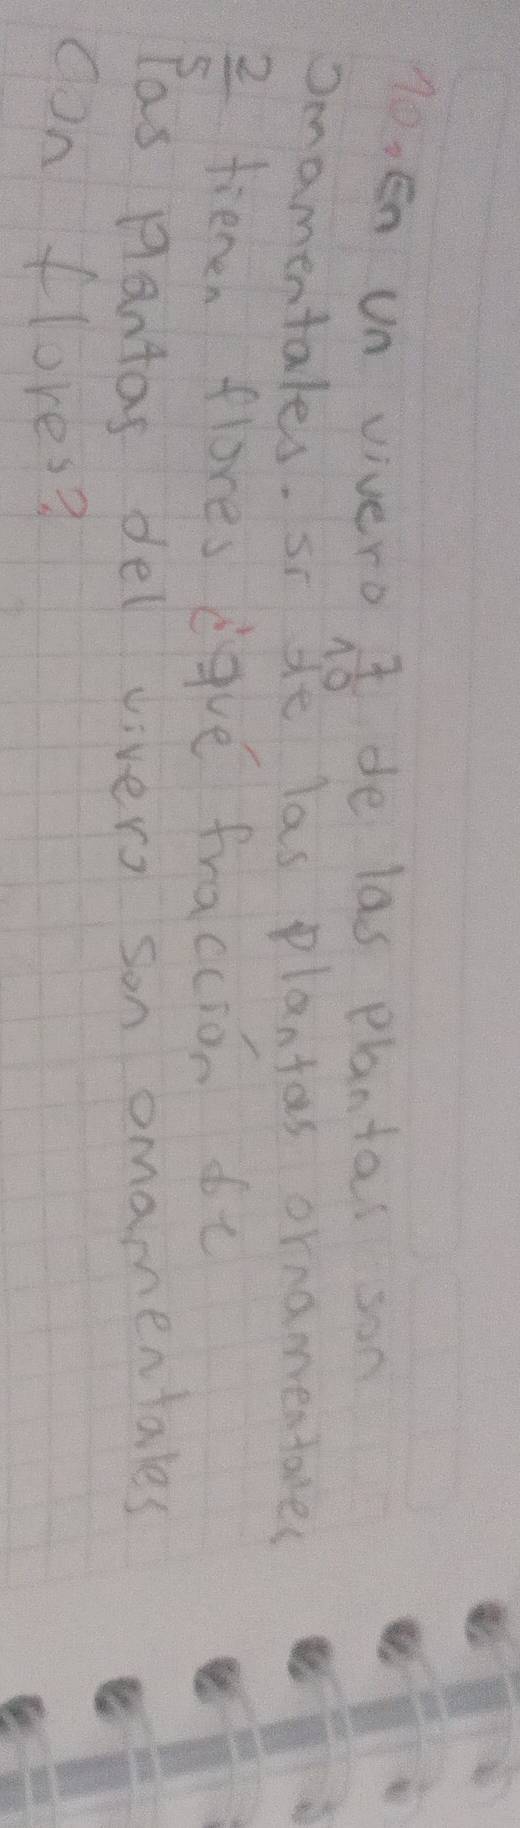 10. En un vivero 7/10 de las plantas son
ornamentales. si de las plantas ornamentales
2/5 tienen flores ¿qué fracción de
las plantas del vivero son ornamentales
con flores?